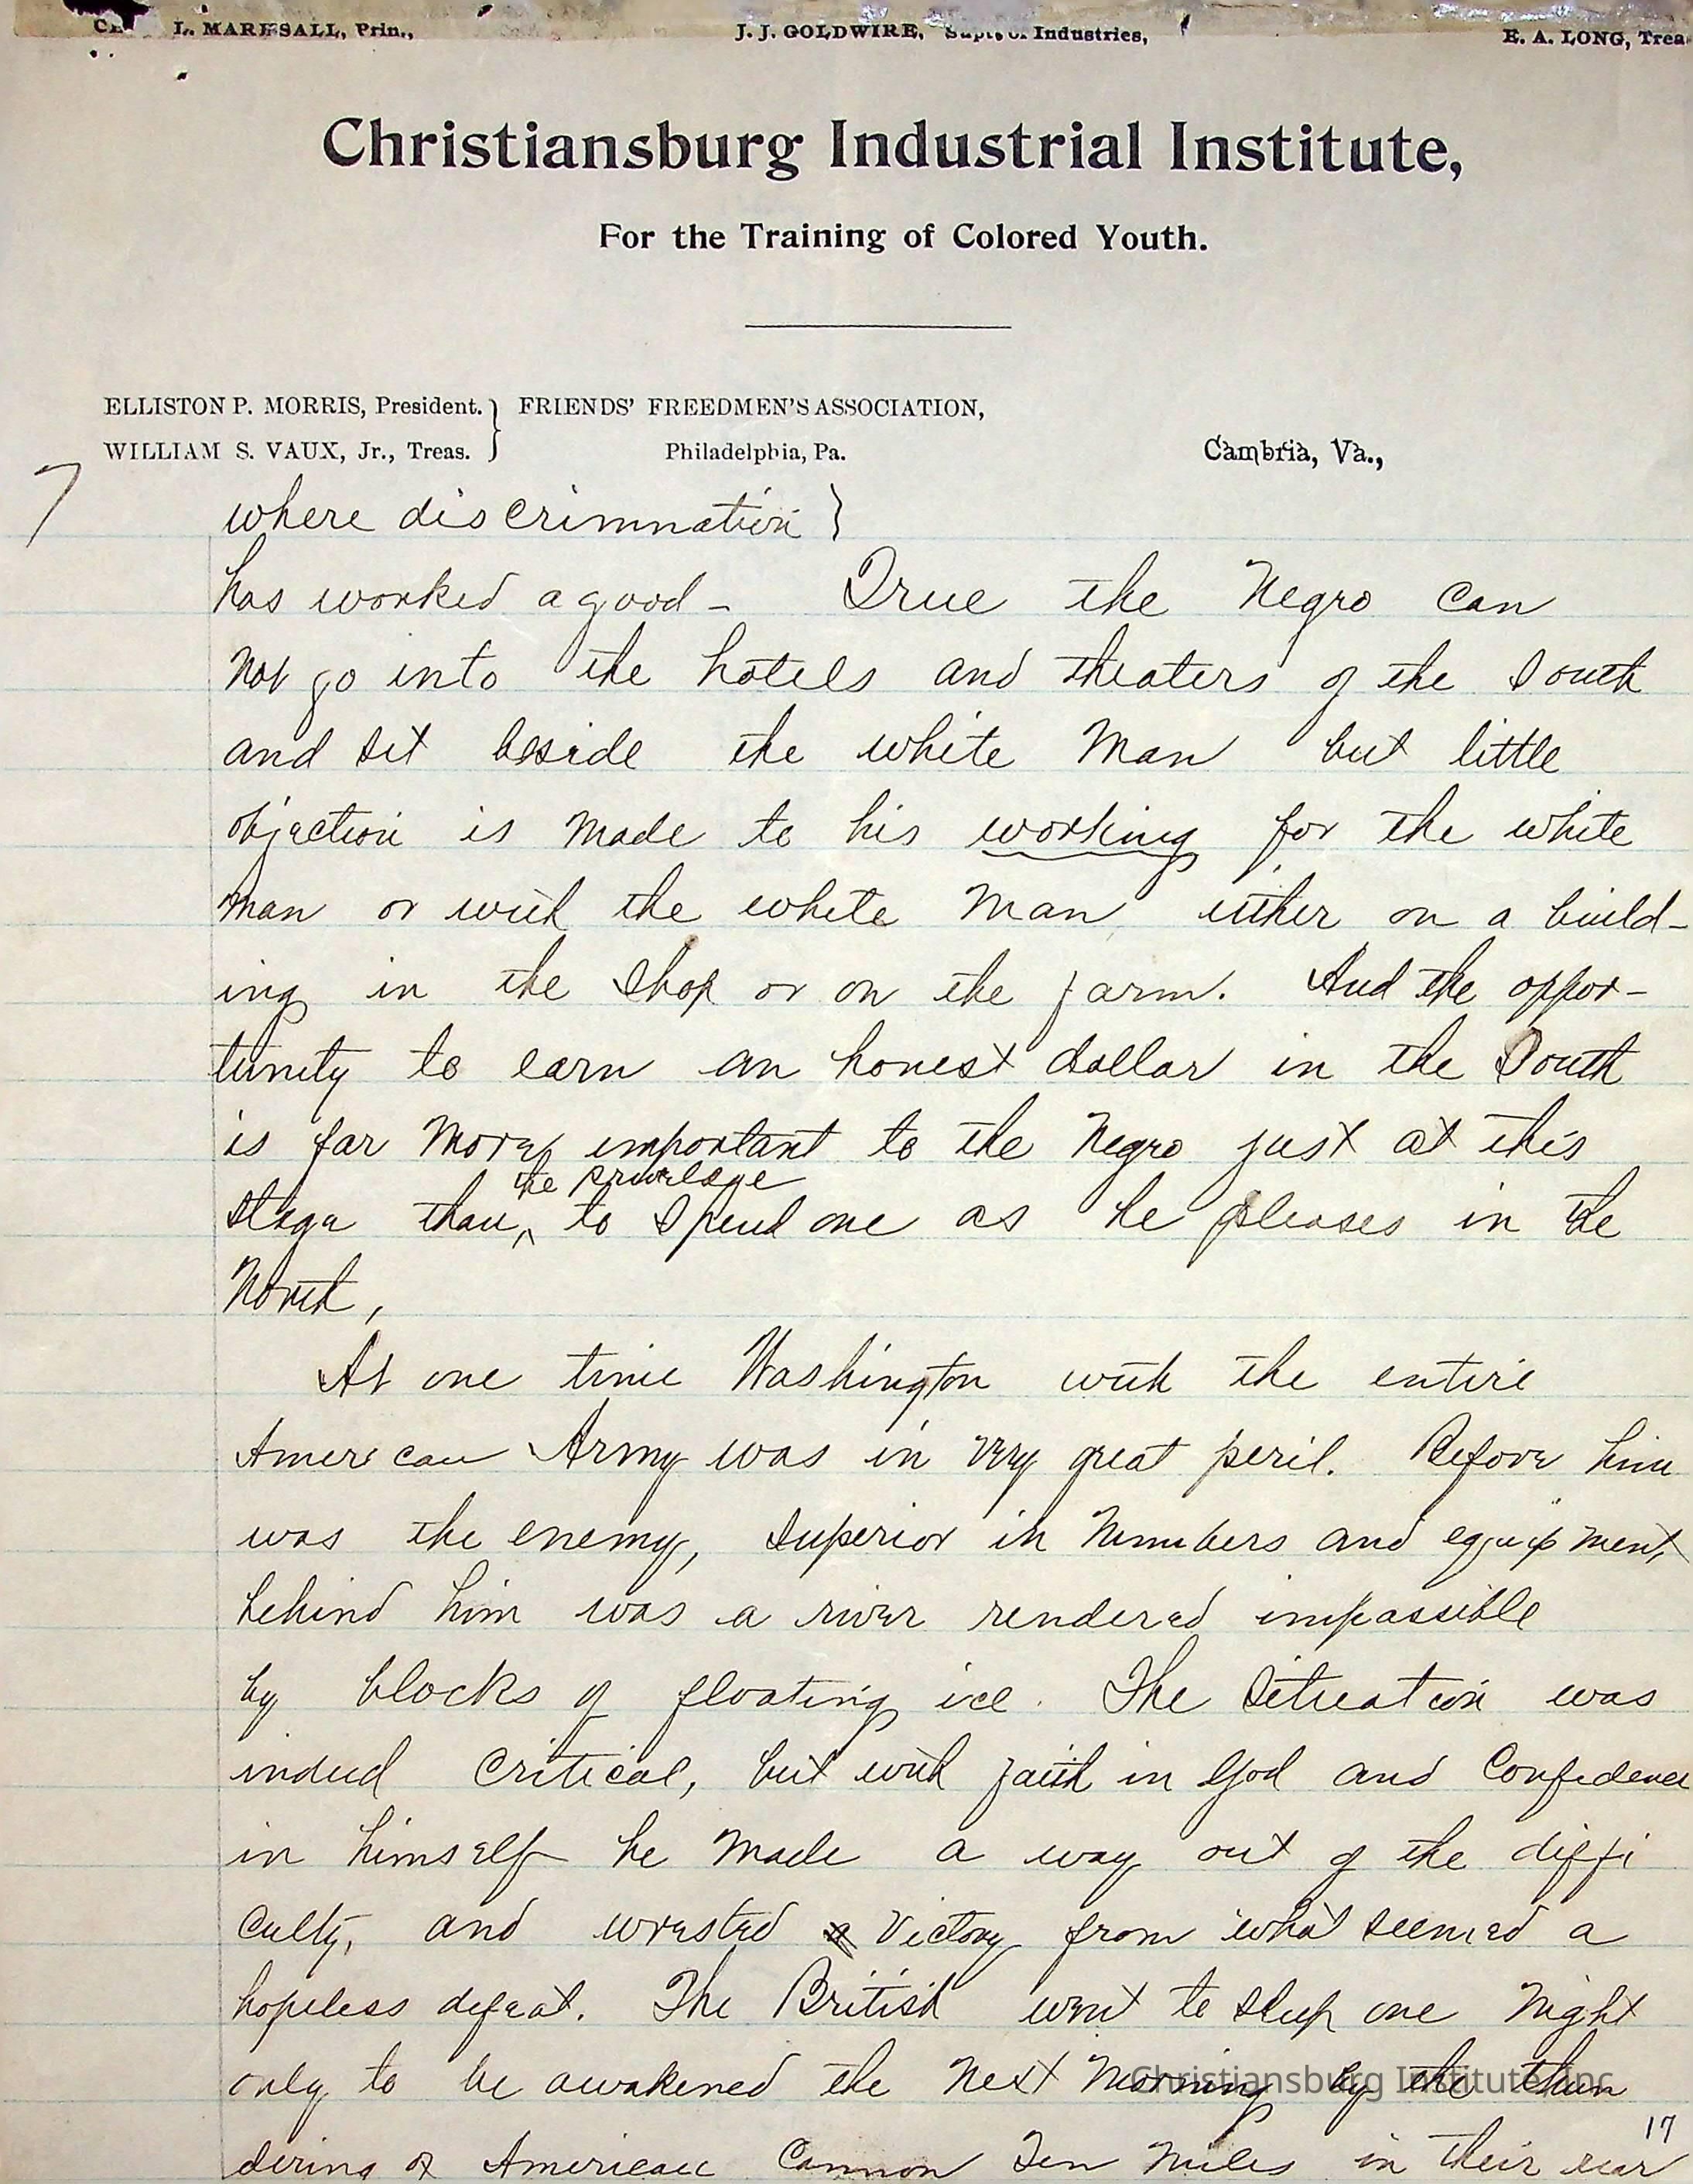 L. MARSHALL, Prin., J. J. GOLDWIRE, Supt. of Industries, E. A. LONG, Trea
Christiansburg Industrial Institute,
For the Training of Colored Youth.
ELLISTON P. MORRIS, President. } FRIENDS' FREEDMEN'S ASSOCIATION,
WILLIAM S. VAUX, Jr., Treas. Philadelphia, Pa. Cambria, Va.,
7
where discrimnation }
has worked a good - True the Negro can
not go into the hotels and theaters of the South
and sit beside the white man but little
objection is made to his working for the white
man or with the white man either on a build-
ing in the shop or on the farm. And the oppor-
tunity to earn an honest dollar in the South
is far more important to the Negro just at this
the privilege
stage than, to spend one as he pleases in the
North,
At one time Washington with the entire
American Army was in very great peril. Before him
was the enemy, superior in numbers and equipment,
behind him was a river rendered impassible
by blocks of floating ice. The situation was
indeed critical, but with faith in God and confidence
in himself he made a way out of the diffi
culty, and wrested a victory from what seemed a
hopeless defeat. The British went to sleep one night
only to be awakened the next morning by the thun
dering of American Cannon Ten miles in their rear
Christiansburg Institute, Inc
17